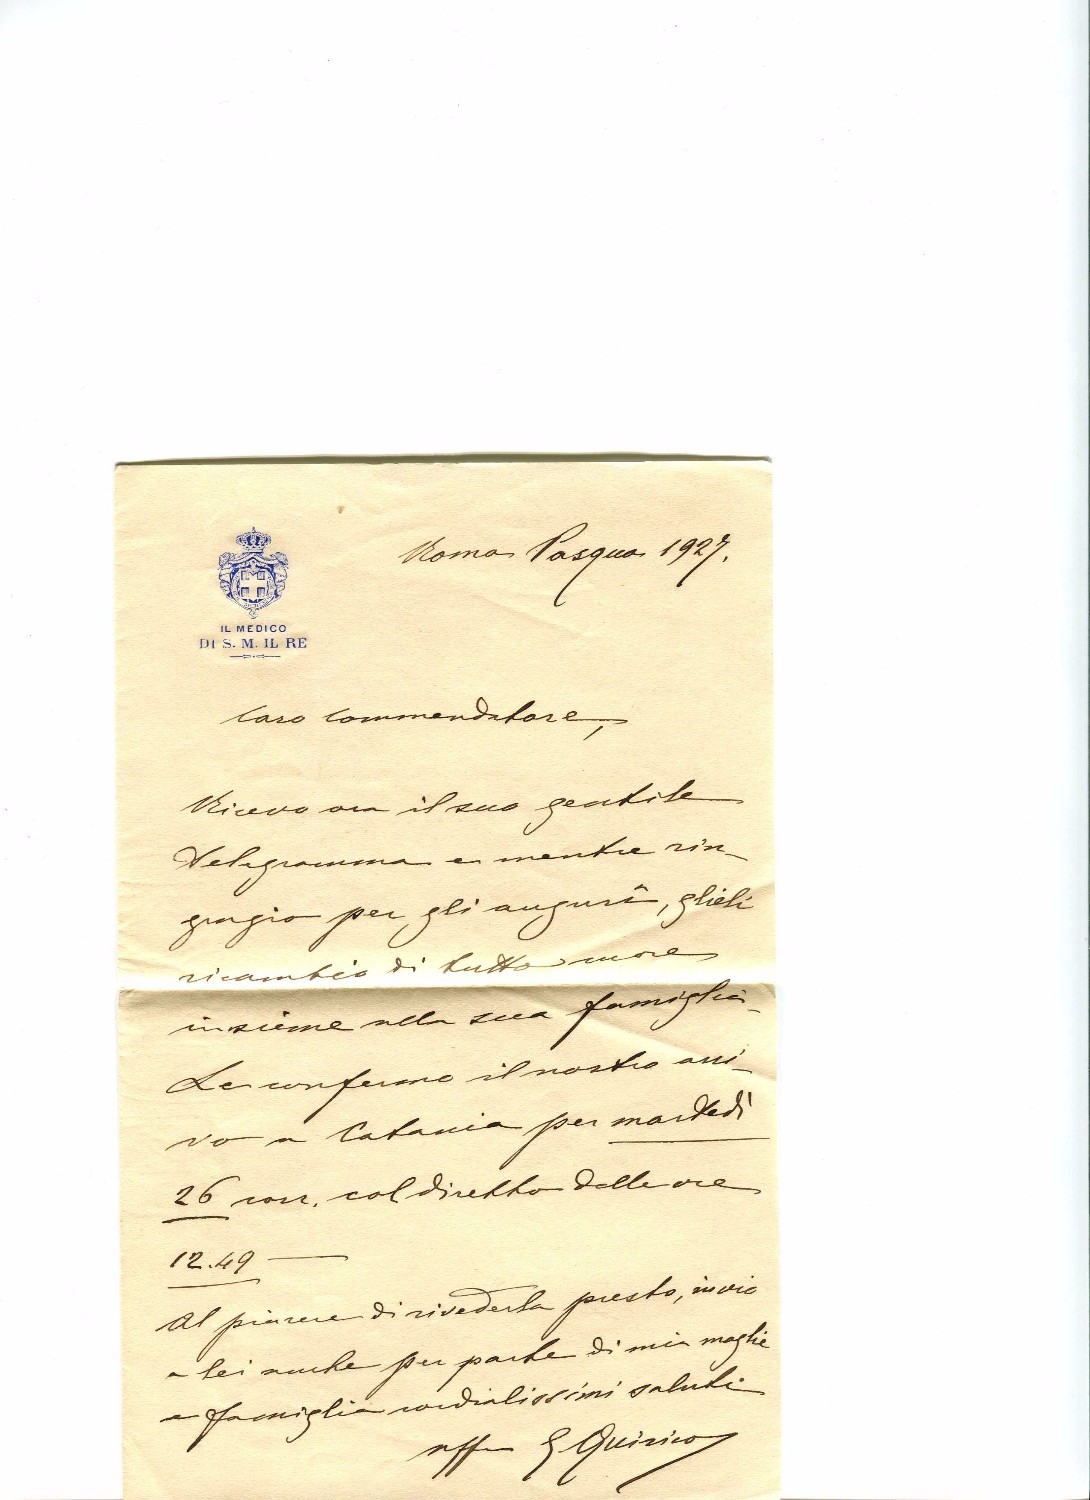 Roma Pasqua 1927.
IL MEDICO
DI S. M. IL RE
Caro Commendatore,
Ricevo ora il suo gentile
telegramma e mentre rin-
grazio per gli augurî, glieli
ricambio di tutto cuore
insieme alla sua famiglia.
Le confermo il nostro arri-
vo a Catania per martedì
26 corr. col diretto delle ore
12.49 —
Al piacere di rivederla presto, invio
a lei anche per parte di mia moglie
e famiglia cordialissimi saluti
aff G Quirico